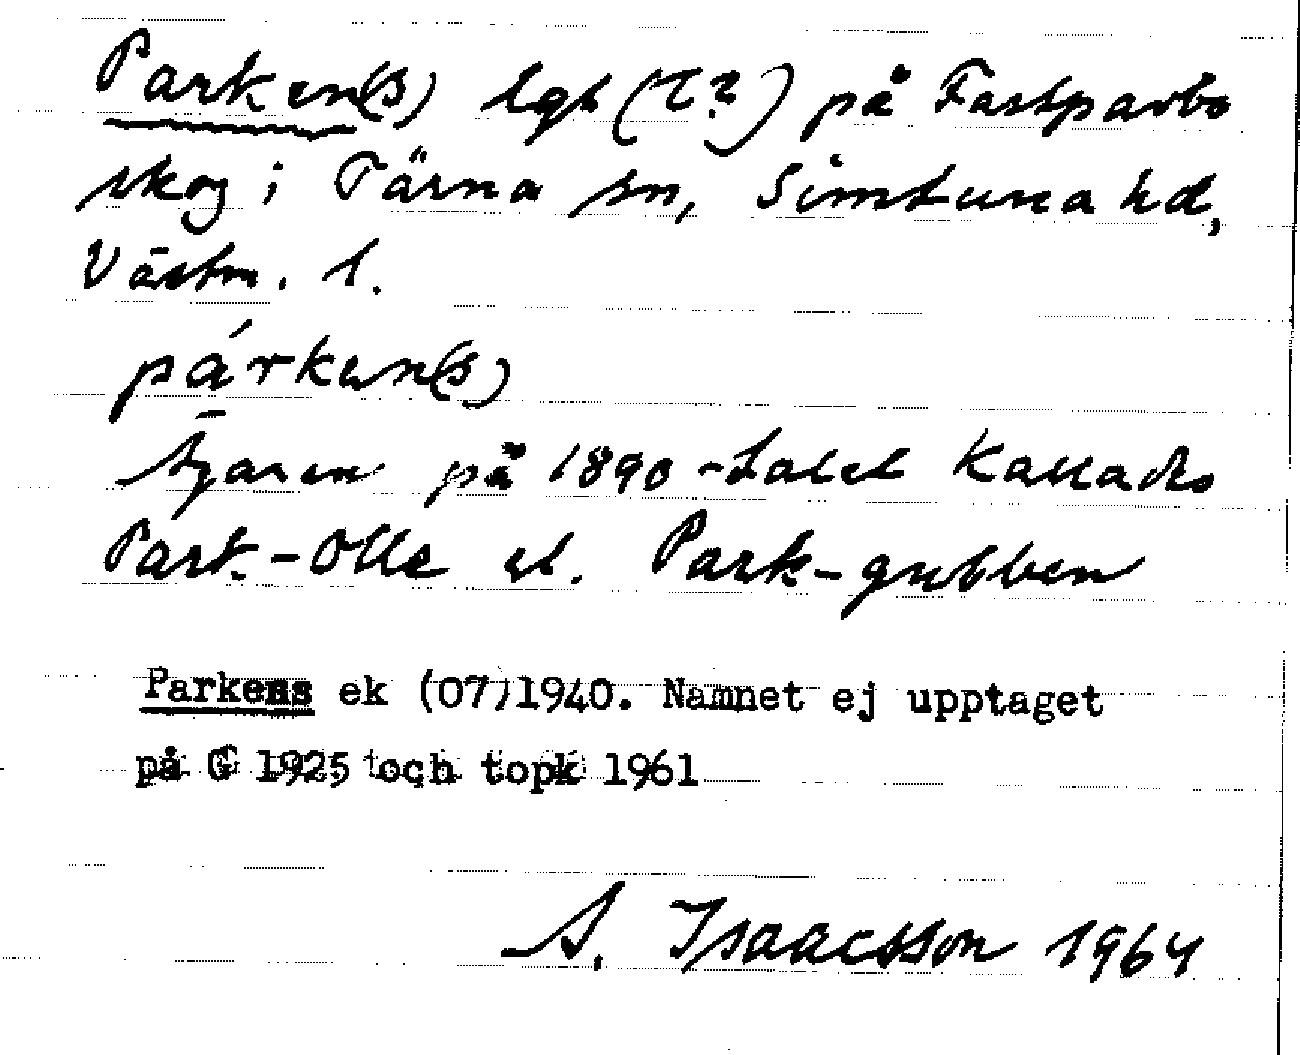 Parken(s) lgh (T?) på Fastparbo
skog i Tärna sn, Simtuna hd,
Västm. l.
párken(s)
Ägaren på 1890-talet kallades
Park-Olle el. Park-gubben
Parkens ek (07)1940. Namnet ej upptaget
på G 1925 och topk 1961
A. Isaacsson 1964